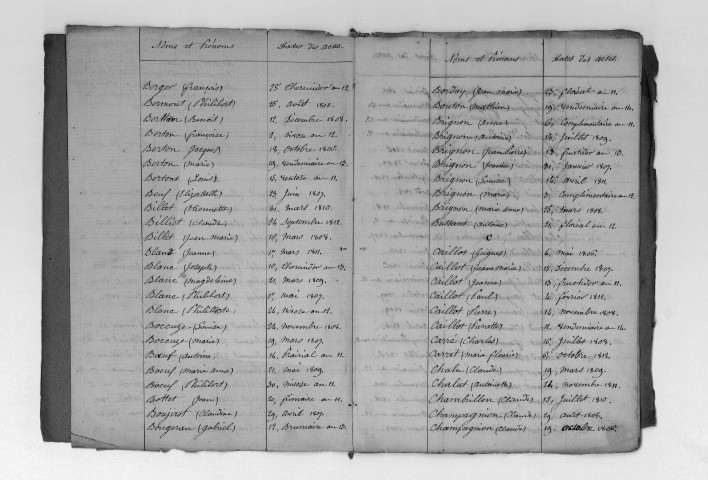 Noms et Prénoms Dates des actes.
Berger (françois) 25 thermidor an 12.
Bermont (Philibert) 15, août 1810.
Berthon (Benoit) 12, Décembre 1808.
Berton (françoise) 2, nivose an 12.
Berton Jacques) 18, octobre 1806.
Berton (marie) 19, vendemiaire an 13.
Bertons (Louis) 15, ventose an 11.
Beuf (Elizabeth) 23, Juin 1807.
Billet (Etiennette) 31, mars 1810.
Billiet (Claude) 24, Septembre 1812.
Billet (Jean marie) 18, mars 1808.
Blanc (Jeanne) 1er mars 1811.
Blanc (Joseph) 10, thermidor an 13.
Blanc (magdeleine) 21, mars 1809.
Blanc (Philibert) 1er mai 1807.
Blanc (Philiberte) 24, Nivose an 12.
Boccuze (Louise) 24, novembre 1808.
Boccuze (marie) 19, mars 1807.
Bœuf (antoine) 16, Prairial an 11.
Boeuf (marie anne) 21, mai 1809.
Boeuf (Philibert) 30, nivose an 11.
Bottet (Jean) 20, frimaire an 11.
Boujirot (Claudine) 29, avril 1807.
Bougerau (gabriel) 12, Brumaire an 13.
Noms et Prénoms Dates des actes.
Borday (Jean marie) 23, floréal an 11.
Bouton (mathieu) 19, Vendemiaire an 14.
Brignon (anne) 6, Complimentaire an 11.
Brignon (Antoine) 18, Juillet 1809.
Brignon (Jean Pierre) 18, fructidor an 13.
Brignon (Jeanne) 31, Janvier 1807.
Brignon (Louise) 14, avril 1811.
Brignon (marie) 3, Complimentaire an 11.
Brignon (marie anne) 25, mars 1808.
Buissant (antoine) 21, floréal an 12.
C
Caillot (Guigues) 6, mai 1806.
Caillot (Jeanne marie) 15, Decembre 1807.
Caillot (Jeanne) 13, fructidor an 11.
Caillot (Paul) 24, fevrier 1811.
Caillot (Pierre) 14, novembre 1808.
Caillot (Pierrette) 11, Vendemiaire an 14.
Carré (Charles) 15, Juillet 1808.
Carret (marie fleurie) 6, octobre 1812.
Chalu (Claude) 19, mars 1809.
Chalus (antoinette) 24, novembre 1811.
Chambillon (Claude) 15, Juillet 1810.
Champagnion (Claude) 29, août 1806.
Champagnion (Claude) 19, octobre 1806.